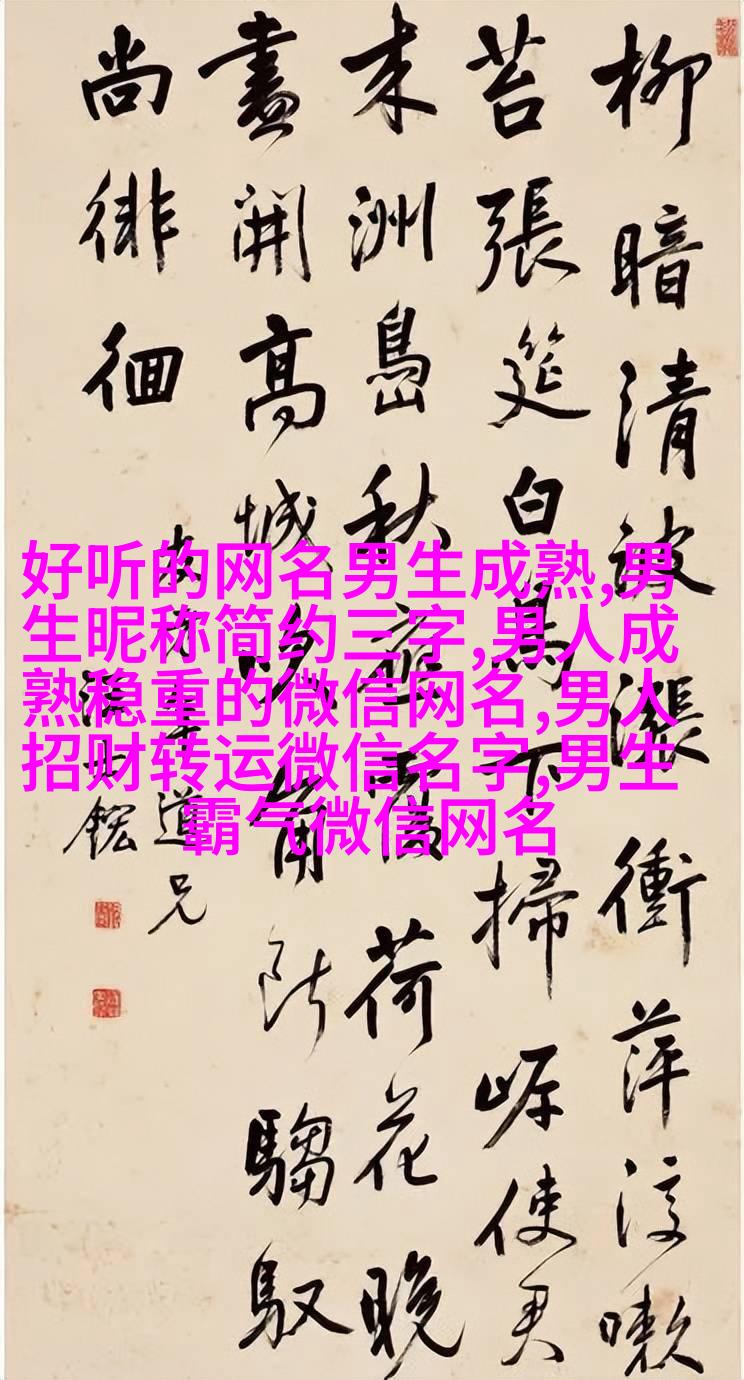 柳暗清波漲衝萍復嗽
苔張筵白鳥下掃岸使君
来洲島秋應沒荷花晚
盡開高城吹角断騶馭
尚徘徊
年道兄
鋐
好听的网名男生成熟,男
生昵称简约三字,男人成
熟稳重的微信网名,男人
招财转运微信名字,男生
霸气微信网名